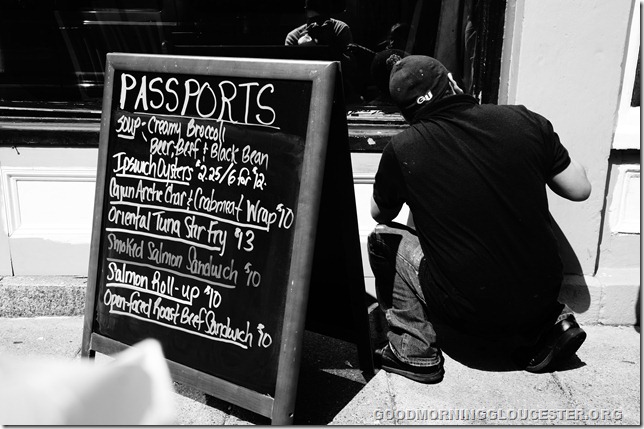 PASSPORTS
SOUP - Creamy Broccoli
Beer-Beef & Black Bean
Ipswich Oysters $2.25/6 for $12.
Cajun Arctic Char & Crabmeat Wrap $10
Oriental Tuna Stir Fry $13
Smoked Salmon Sandwich $10
Salmon Roll-up $10
Open-faced Roast Beef Sandwich $10
GOODMORNINGGLOUCESTER.ORG